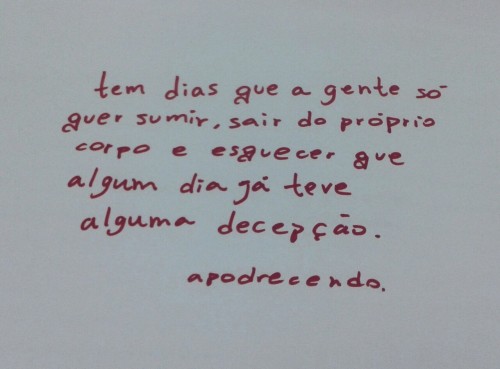 tem dias que a gente só
quer sumir, sair do próprio
corpo e esquecer que
algum dia já teve
alguma decepção.
apodrecendo.